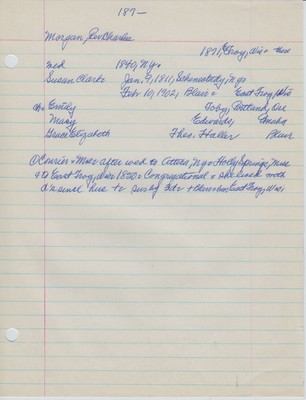 187—
Morgan, Rev Charles
1871, E Troy, Wis
md 1840, Ny
Susan Clark Jan. 9, 1811, Schenectady, Ny
Feb 10, 1902, Blair East Troy, Wis
Emily Toby, Portland, Ore
Mary Edwards, Omaha
Grace Elizabeth Theo. Haller Blair
after wed to Attica, Ny Holly Springs, Miss
& to East Troy, Wis 1850 Congregational she lived with
d's since hus d surv by East Troy, Wis,